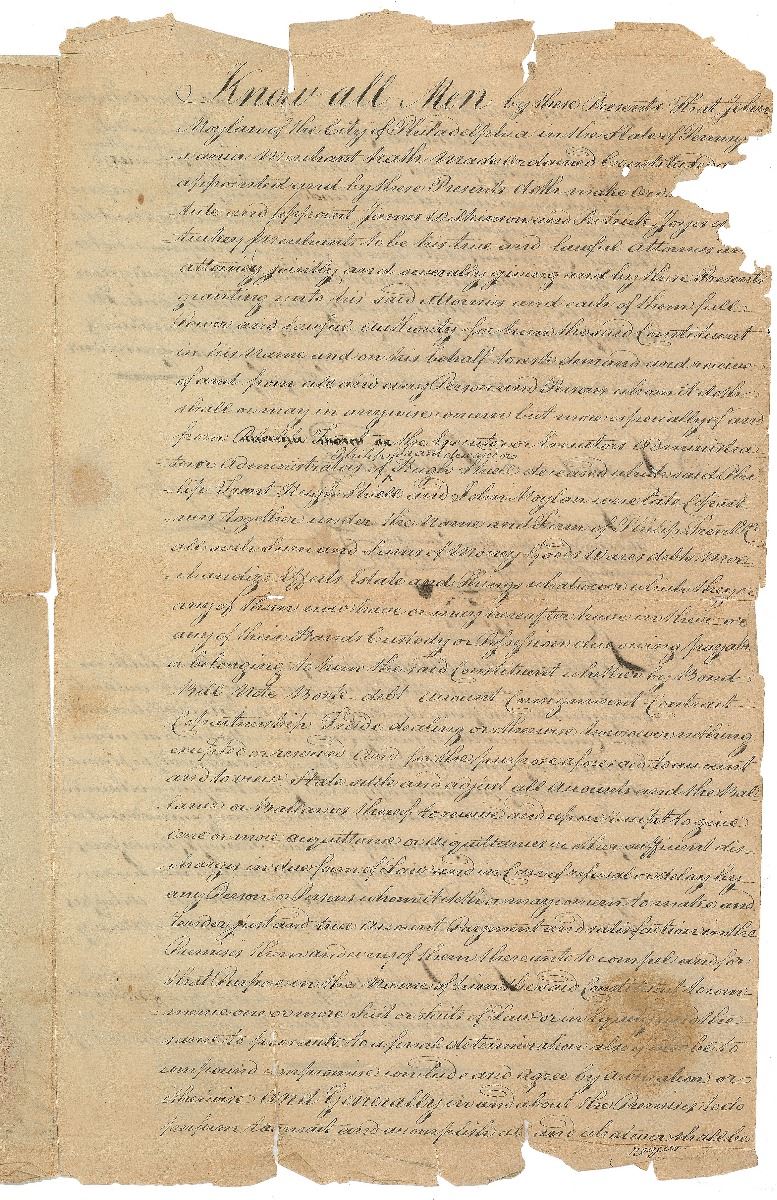 Know all Men by these Presents that John
Moylan of the City of Philadelphia in the State of Pennsyl
vania Merchant hath made ordained constituted
appointed and by these Presents doth make ord
tute and appoint James and Patrick Joyes
tuckey Merchants to be his true and lawful Attornies
Attorney jointly and severally giving and by these Presents
granting unto his said Attornies and each of them full
Power and lawful authority for him the said Constituent
in his Name and on his behalf to ask demand and receive
of and from all and every Person and Persons whom it doth
shall or may in anywise concern but more especially of and
from the Executor or Executors Administra
tor or Administrators of Hugh Shiell deceased which said Phi
lip Trant Hugh Shiell and John Moylan were late Copart
ners together under the Name and Firm of Philip Trant & Co
all such Sum and Sums of Money Goods Wares debts Mer
chandize Effects Estate and things whatsoever which they or
any of them now have or may hereafter have in their or
any of their Hands Custody or Possession due owing payable
or belonging to him the said Constituent whether by Bond
Bill Note Book debt account Consignment Contract
Copartnership Trade dealing or otherwise howsoever nothing
excepted or reserved and for the purpose aforesaid to account
and to view State settle and adjust all accounts and the Bal
lance or Ballances thereof to receive and upon receipt to give
one or more acquittance or acquittances or other sufficient dis
charges in due form of Law and in Case of refusal or delay by
any Person or Persons whom it doth or may concern to make and
render just and true account Payment and satisfaction in the
Premises them and every of them thereunto to compel and for
that Purpose in the Name of him the said Constituent to com
mence one or more Suit or Suits at Law or in Equity and the
same to prosecute to a final determination also
compound compromise conclude and agree by arbitration or
otherwise And Generally in and about the Premises to do
perform transact and accomplish all and whatever shall be